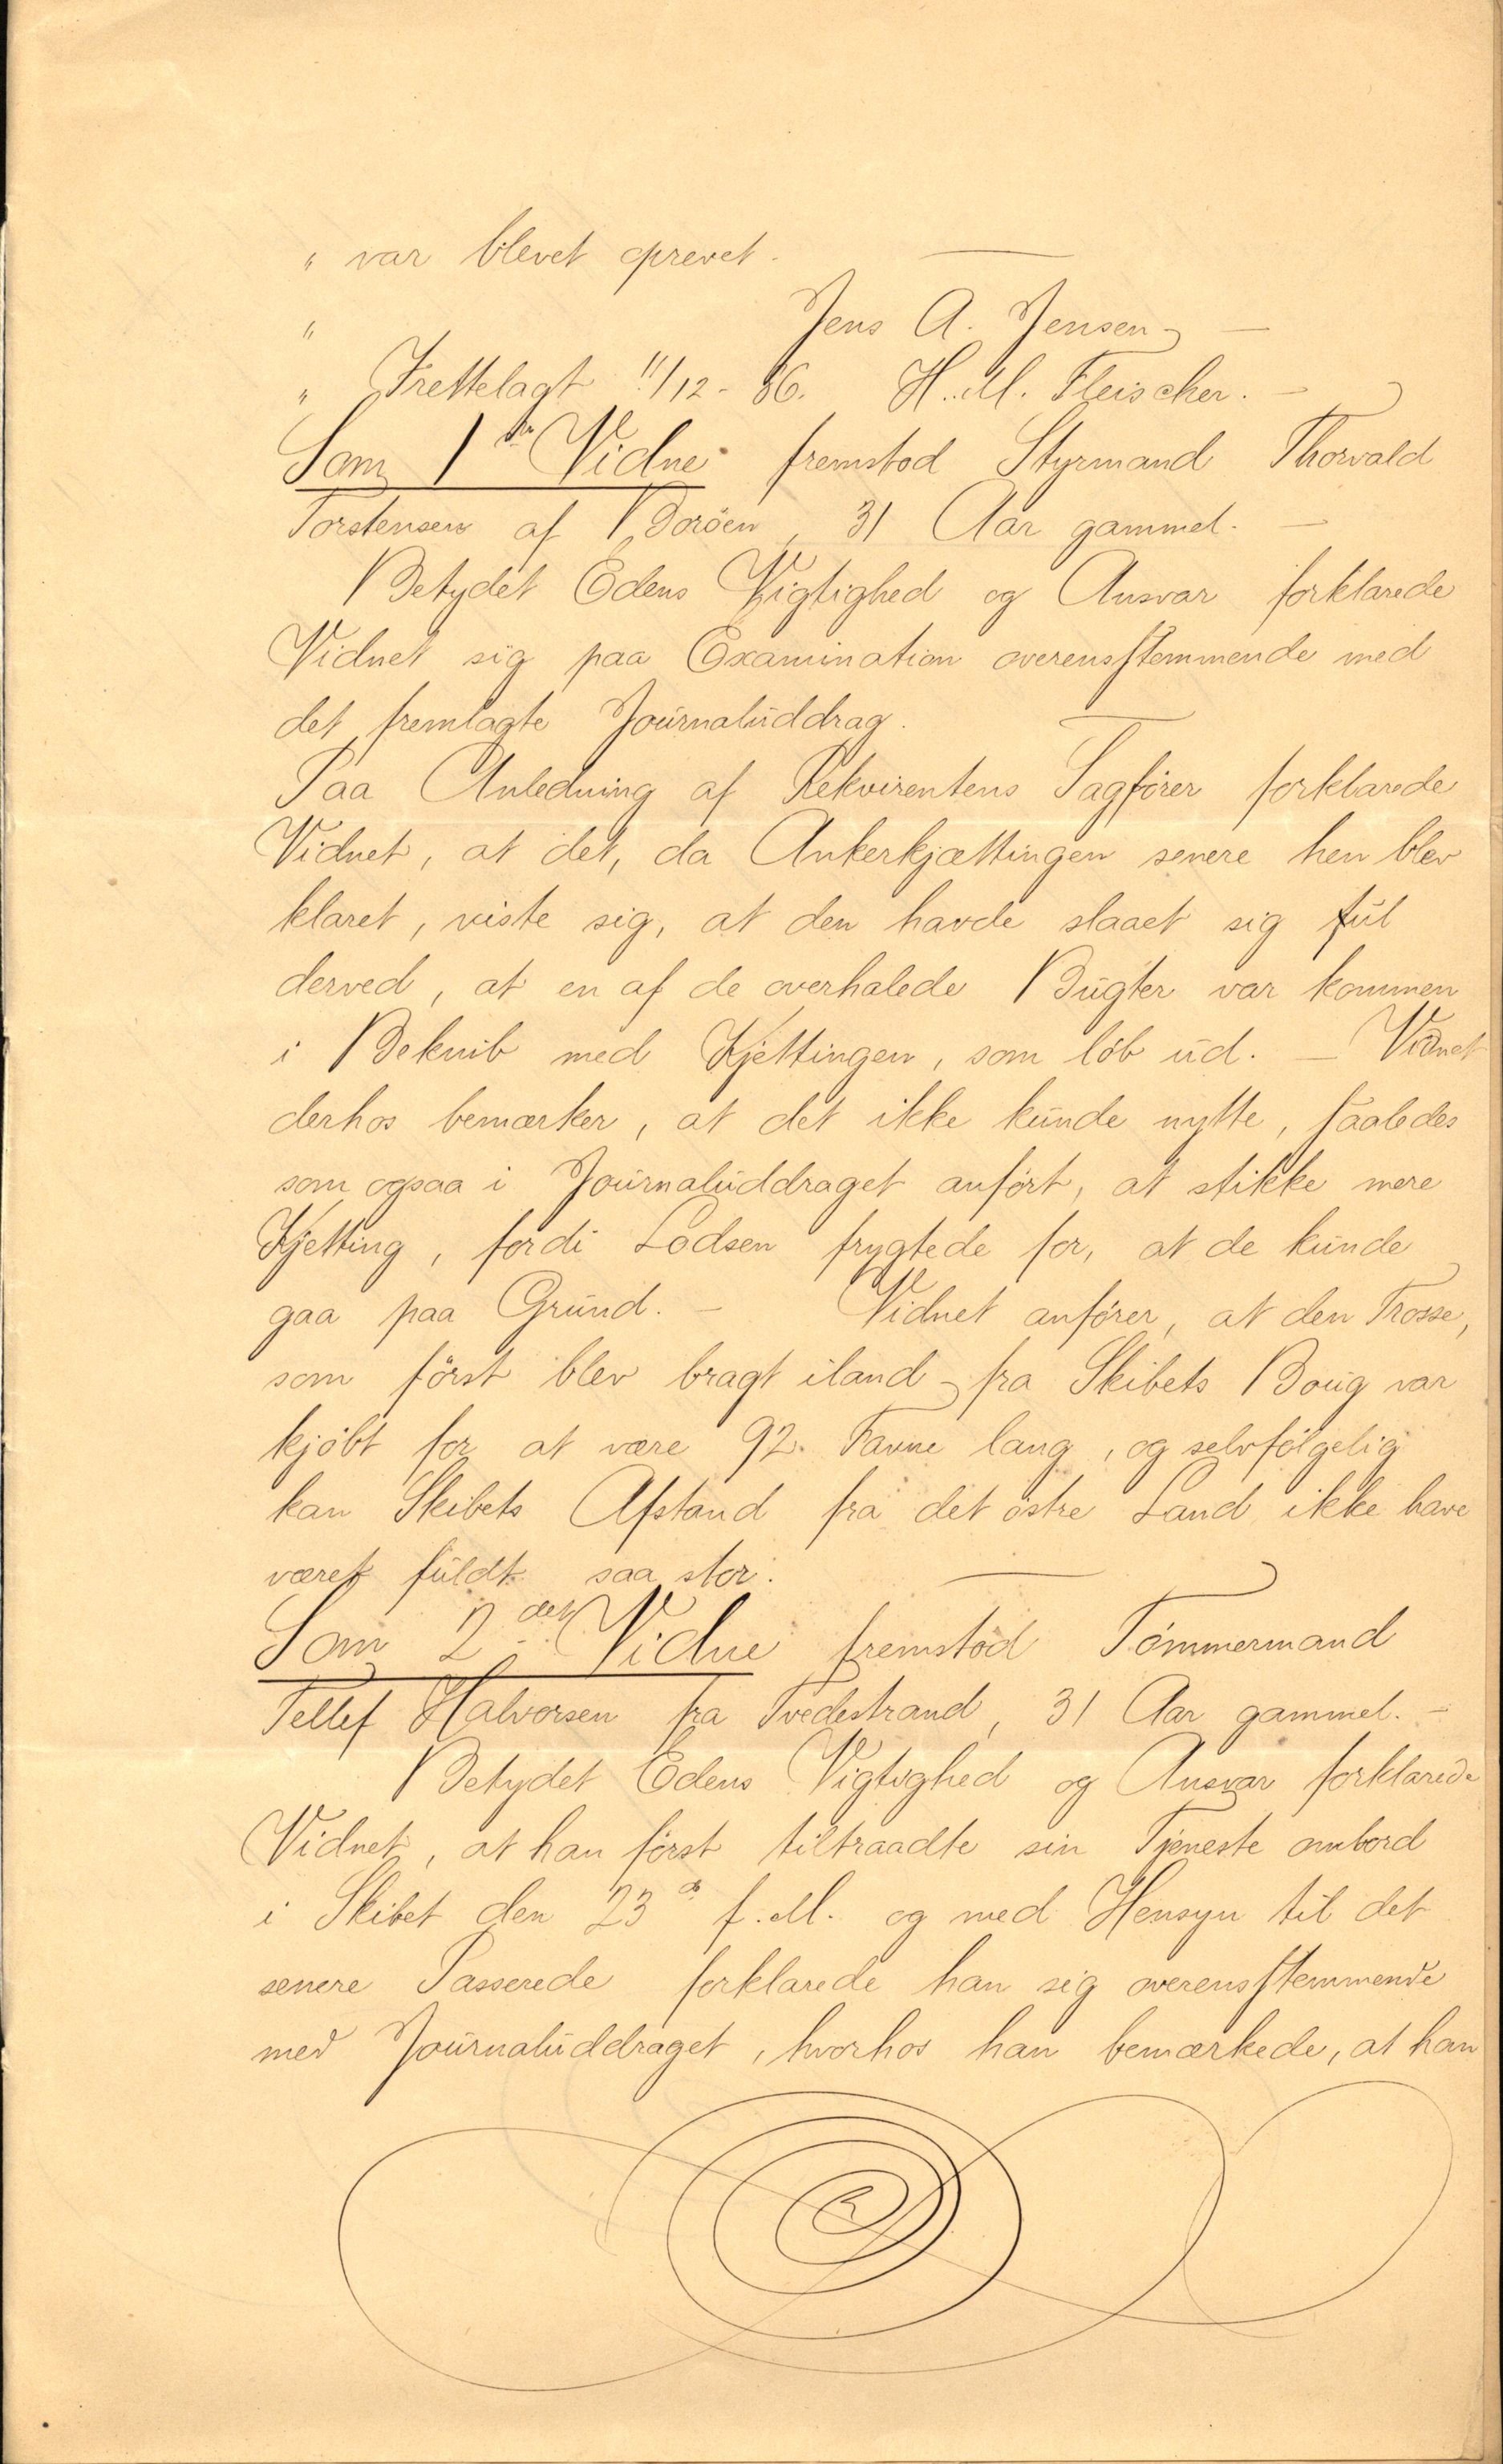 " var blevet oprevet. —
" Jens A. Jensen —
" Frettelagt 11/12 - 86. H. M. Fleischer. —
Som 1ste Vidne fremstod Styrmand Thorvald
Torstensen af Borøen, 31 Aar gammel. —
Betydet Edens Vigtighed og Ansvar forklarede
Vidnet sig paa Examination overensstemmende med
det fremlagte Journaluddrag. —
Paa Anledning af Rekvirentens Sagfører forklarede
Vidnet, at det, da Ankerkjættingen senere hen blev
klaret, viste sig, at den havde slaaet sig ful
derved, at en af de overhalede Bugter var kommen
i Beknib med Kjettingen, som løb ud. — Vidnet
derhos bemærker, at det ikke kunde nytte, saaledes
som ogsaa i Journaluddraget anført, at stikke mere
Kjetting, fordi Lodsen frygtede for, at de kunde
gaa paa Grund. — Vidnet anfører, at den Trosse,
som først blev bragt iland fra Skibets Boug var
kjøbt for at være 92 Favne lang, og selvfølgelig
kan Skibets Afstand fra det østre Land ikke have
været fuldt saa stor. —
Som 2det Vidne fremstod Tømmermand
Tellef Halvorsen fra Tvedestrand, 31 Aar gammel. —
Betydet Edens Vigtighed og Ansvar forklarede
Vidnet, at han først tiltraadte sin Tjeneste ombord
i Skibet den 23de f. M. og med Hensyn til det
senere Passerede forklarede han sig overensstemmende
med Journaluddraget, hvorhos han bemærkede, at han